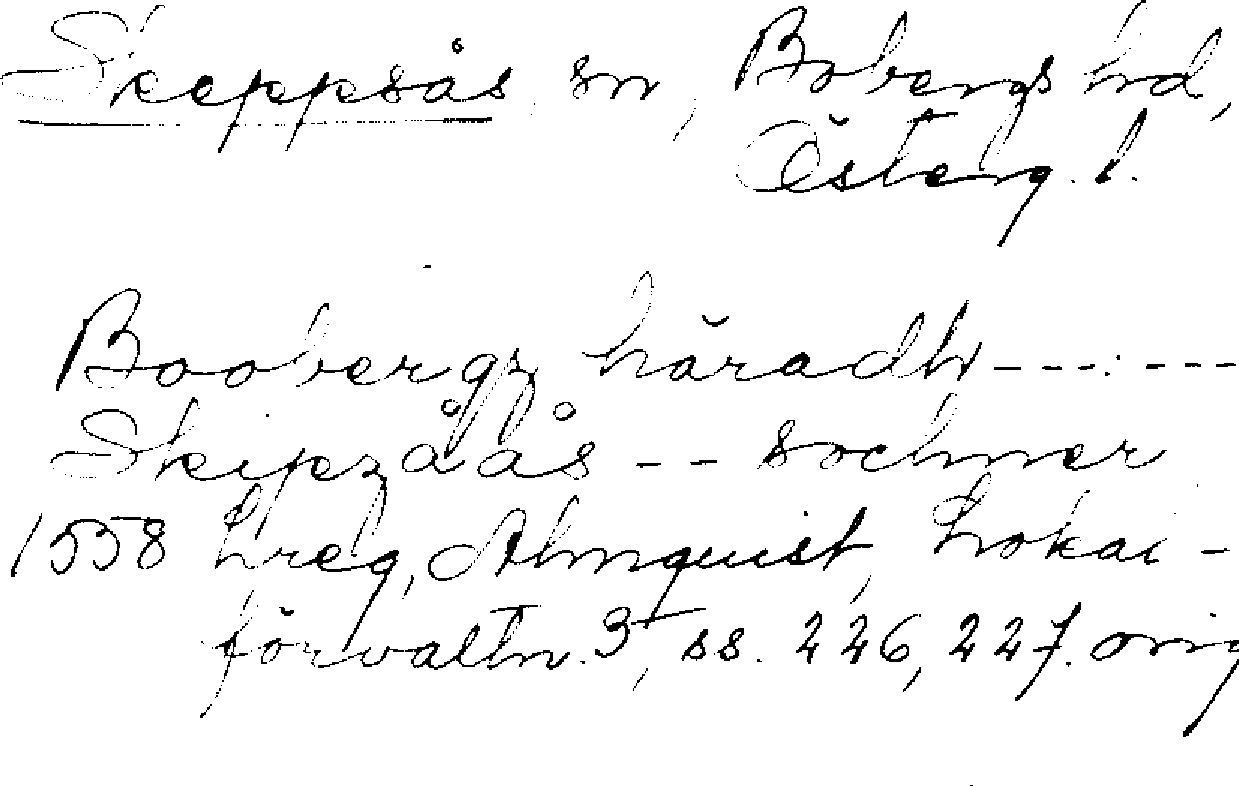 Skeppsås sn, Bobergs hd,
Österg. l.
Boobergz häradh ---:---
Skipzåås -- sochner
1558 Lreg, Almquist, Lokal-
förvaltn. 3, ss. 226, 227. orig